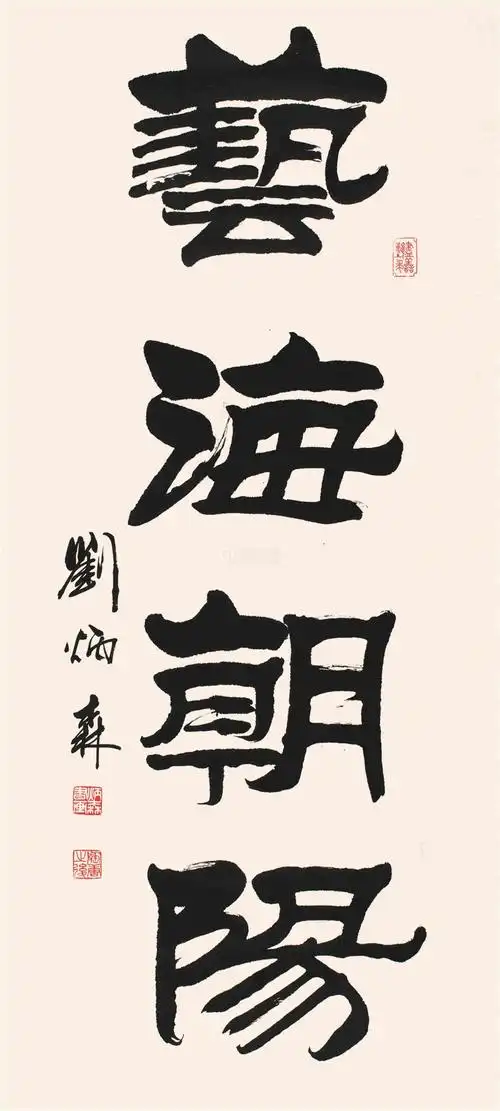 藝海朝陽
劉炳森